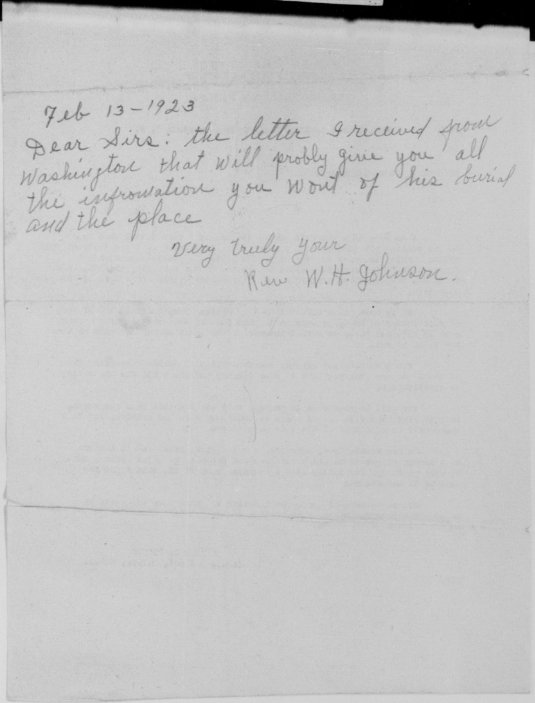 Feb 13-1923
Dear Sirs: the letter I received from
Washington that will probly give you all
the infromation you wont of his burial
and the place
Very truly your
Rev W.H. Johnson.